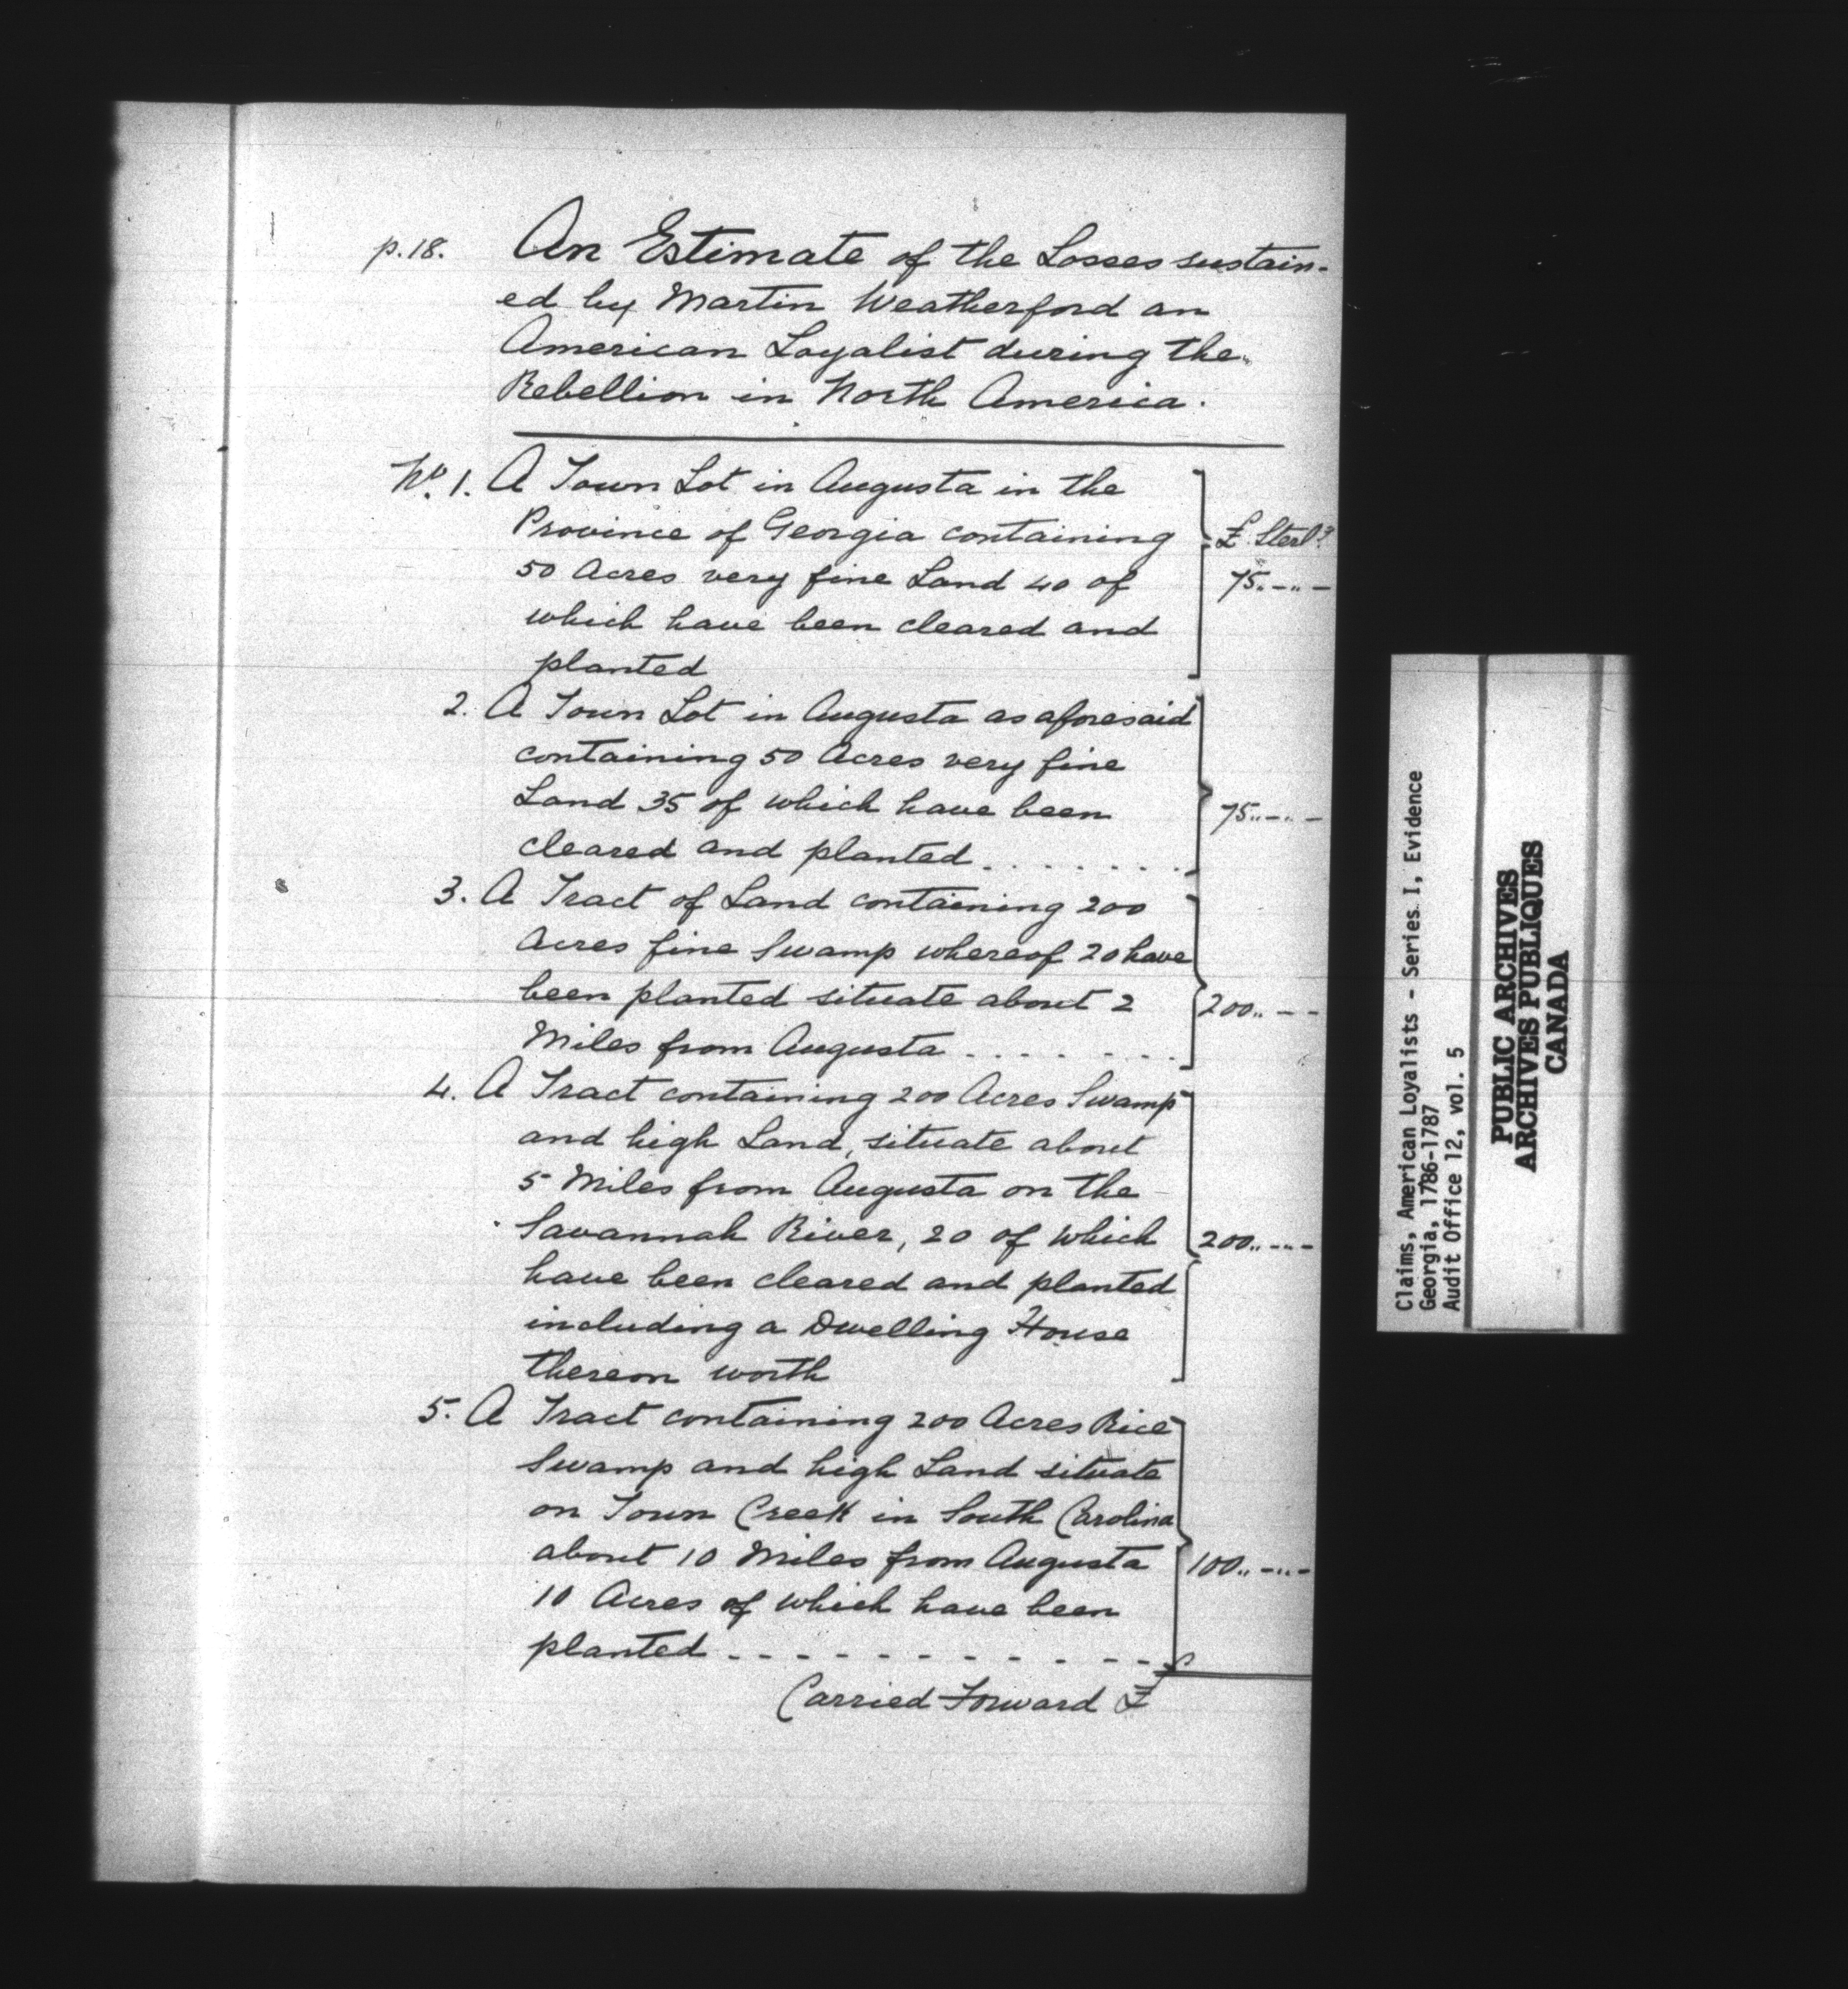 p.18. An Estimate of the Losses sustain-
ed by Martin Weatherford an
American Loyalist during the
Rebellion in North America.
No. 1. A Town Lot in Augusta in the
Province of Georgia containing £ Sterlg
50 Acres very fine Land 40 of 75.-..-
which have been cleared and
planted
2. A Town Lot in Augusta as aforesaid
containing 50 Acres very fine
Land 35 of which have been 75..-..-
cleared and planted . . . . . . . .
3. A Tract of Land containing 200
Acres fine Swamp whereof 20 have
been planted situate about 2 200..--
Miles from Augusta . . . . . . .
4. A Tract containing 200 Acres Swamp
and high Land, situate about
5 Miles from Augusta on the
Savannah River, 20 of which 200..-..-
have been cleared and planted
including a Dwelling House
thereon worth
5. A Tract containing 200 Acres Rice
Swamp and high Land situate
on Town Creek in South Carolina
about 10 Miles from Augusta 100..-..-
10 Acres of which have been
planted - - - - - - - - - - - -
Carried Forward £
Claims, American Loyalists - Series I, Evidence
Georgia, 1786-1787
Audit Office 12, vol. 5
PUBLIC ARCHIVES
ARCHIVES PUBLIQUES
CANADA